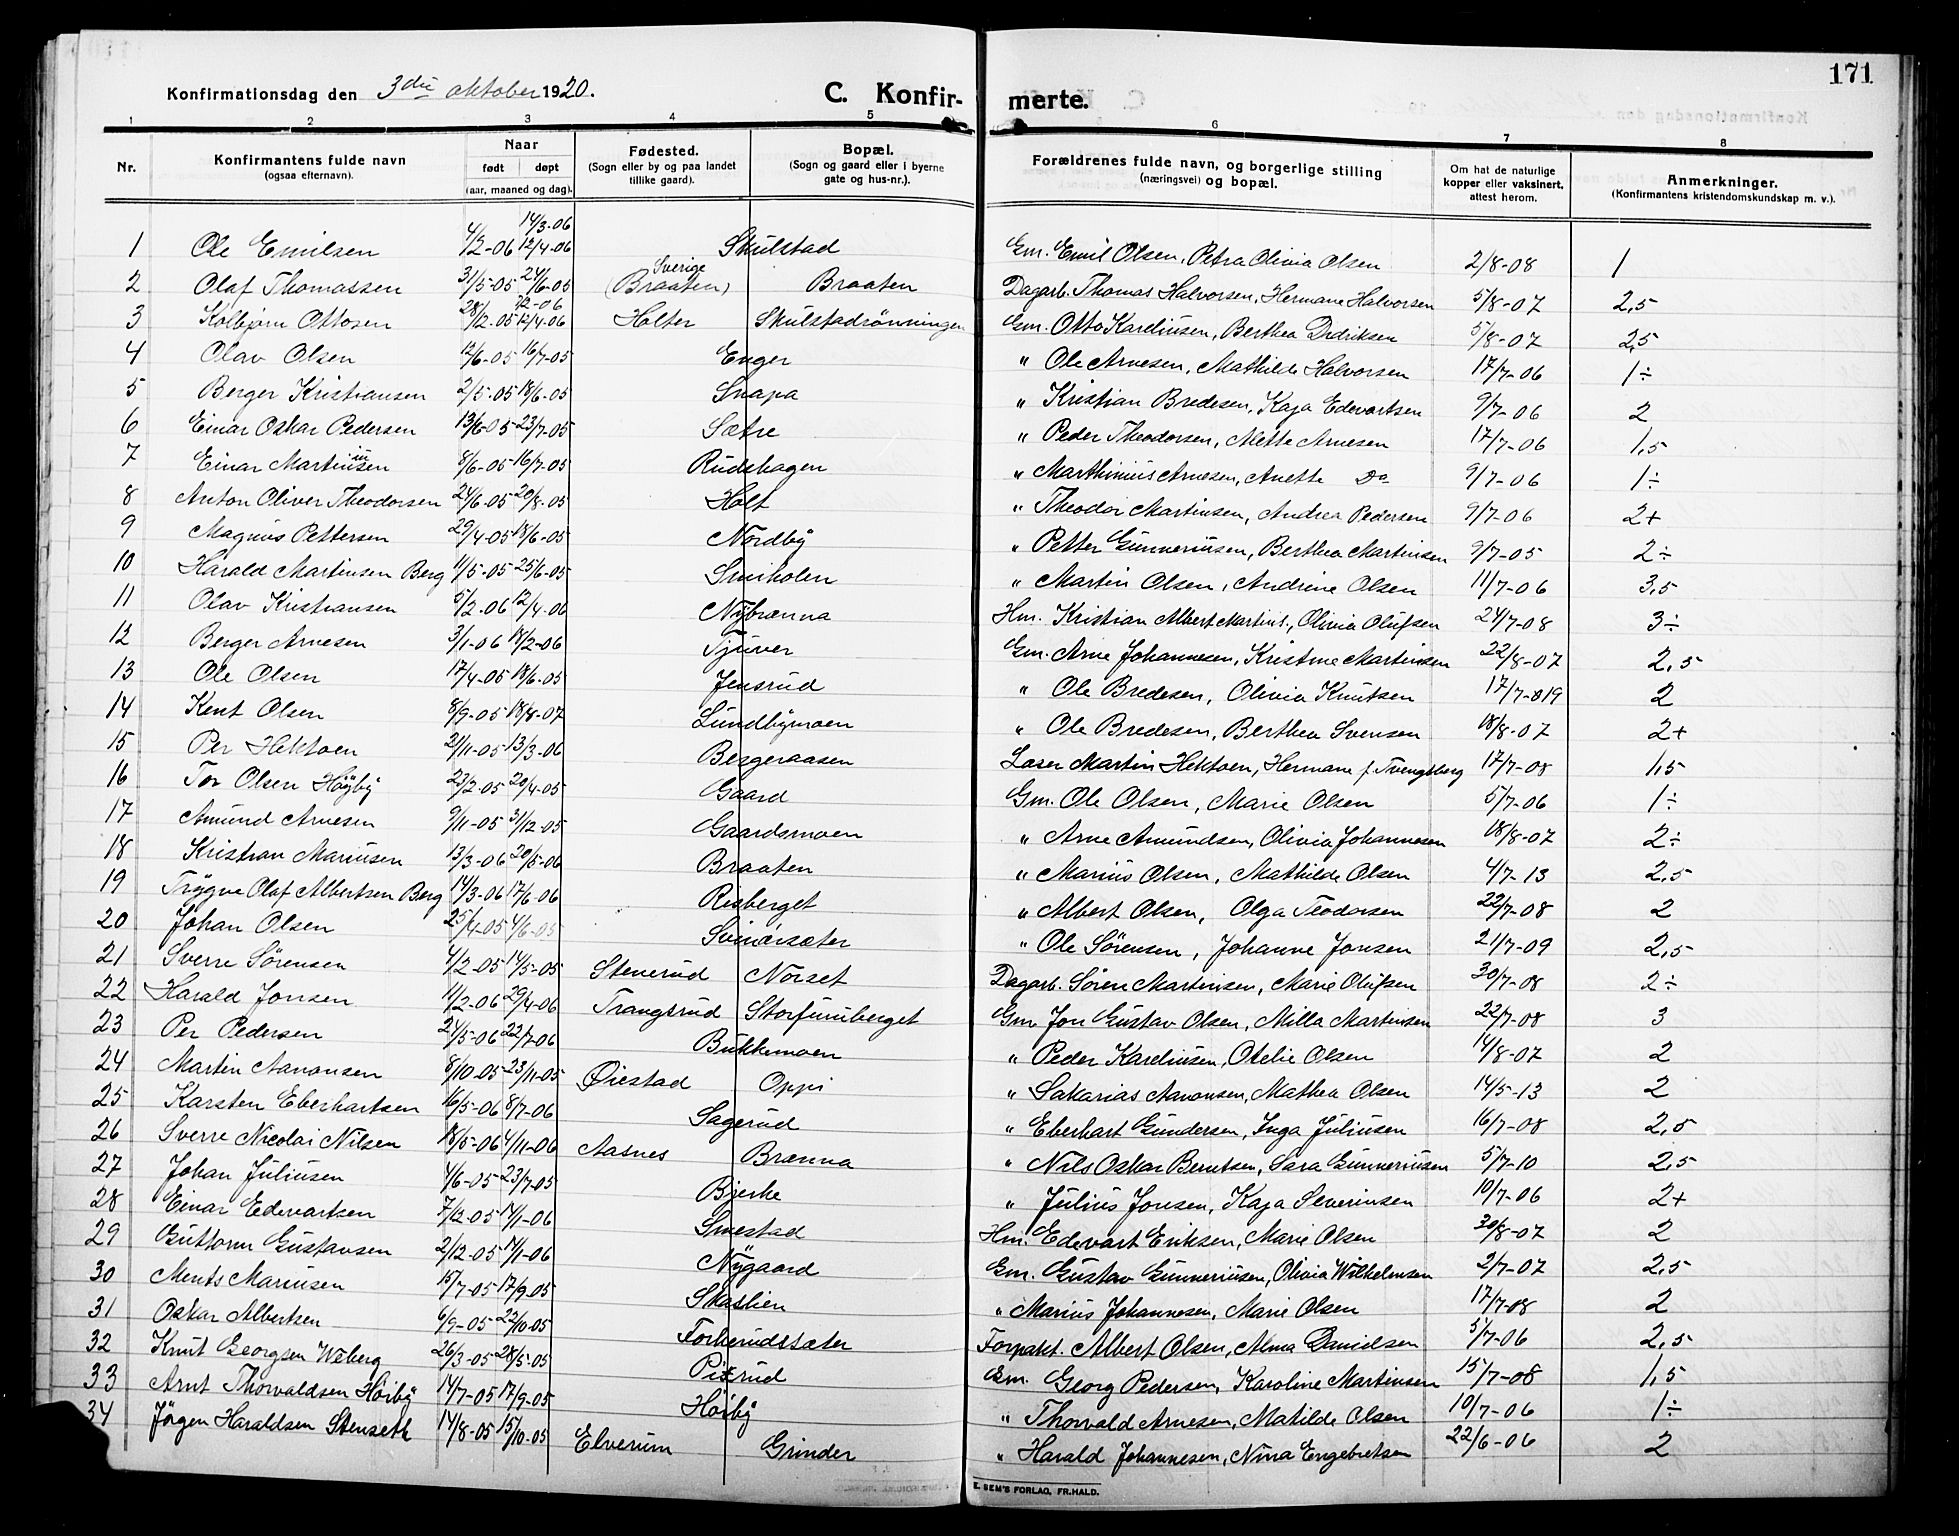 171
Konfirmationsdag den 3die oktober 1920.
C. Konfirmerte.
1 2 3 4 5 6 7 8
Nr. Konfirmantens fulde navn (ogsaa efternavn). Naar født døpt (aar, maaned og dag). Fødested. (Sogn eller by og paa landet tillike gaard). Bopæl. (Sogn og gaard eller i byerne gate og hus-nr.). Forældrenes fulde navn, og borgerlige stilling (næringsvei) og bopæl. Om hat de naturlige kopper eller vaksinert, attest herom. Anmerkninger. (Konfirmantens kristendomskundskap m. v.).
14/3-06
1 Ole Emilsen 4/2-06 12/4-06 Skulstad Gm. Emil Olsen, Petra Olivia Olsen 2/8-08 1
2 Olaf Thomassen 31/5-05 24/6-05 Sverige (Braaten) Braaten Dagarb. Thomas Halvorsen, Hermane Halvorsen 5/8-07 2,5
3 Kolbjørn Ottosen 28/12-05 12/4-06 Holter Skulstadrønningen Gm. Otto Kareliusen, Berthea Didriksen 5/8-07 2,5
4 Olav Olsen 12/6-05 16/7-05 Enger " Ole Arnesen, Mathilde Halvorsen 17/7-06 1÷
5 Berger Kristiansen 2/5-05 18/6-05 Snapa " Kristian Bredesen, Kaja Edevartsen 9/7-06 2
6 Einar Oskar Pedersen 13/6-05 23/7-05 Sætre " Peder Theodorsen, Mette Arnesen 17/7-06 1,5
7 Einar Martiniusen 8/6-05 16/7-05 Rudshagen " Marthinius Arnesen, Anette Do 9/7-06 1÷
8 Anton Oliver Theodorsen 24/6-05 20/8-05 Holt " Theodor Martinsen, Andrea Pedersen 9/7-06 2+
9 Magnus Pettersen 29/4-05 18/6-05 Nordby " Petter Gunneriusen, Berthea Martinsen 9/7-05 2÷
10 Harald Martinsen Berg 11/5-05 25/6-05 Smiholen " Martin Olsen, Andrine Olsen 11/7-06 3,5
11 Olav Kristiansen 5/2-06 12/4-06 Nybrænna Hm. Kristian Albert Martins., Olivia Olufsen 24/7-08 3÷
12 Berger Arnesen 3/1-06 18/2-06 Tjuver Gm. Arne Johannesen, Kristine Martinsen 22/8-07 2,5
13 Ole Olsen 17/4-05 18/6-05 Jensrud " Ole Bredesen, Olivia Knutsen 17/7-019 2
14 Kent Olsen 8/9-05 18/8-07 Lundbymoen " Ole Bredesen, Berthea Svensen 18/8-07 2+
15 Per Hektoen 2/11-05 13/3-06 Bergeraasen Laser Martin Hektoen, Hermane f. Tvengsberg 17/7-08 1,5
16 Tor Olsen Høyby 23/2-05 20/4-05 Gaard Gm. Ole Olsen, Marie Olsen 5/7-06 1÷
17 Amund Arnesen 9/11-05 31/12-05 Gaardsmoen " Arne Amundsen, Olivia Johannesen 18/8-07 2÷
18 Kristian Mariusen 13/3-06 20/5-06 Braaten " Marius Olsen, Mathilde Olsen 4/7-13 2,5
19 Trygve Olaf Albertsen Berg 14/3-06 17/6-06 Risberget " Albert Olsen, Olga Teodorsen 22/7-08 2
20 Johan Olsen 25/4-05 4/6-05 " Ole Sørensen, Johanne Jonsen 21/7-09 2,5
21 Sverre Sørensen 4/2-05 14/5-05 Stenerud Norset Dagarb. Søren Martinsen, Marie Olufsen 30/7-08 2÷
22 Harald Jonsen 11/2-06 29/4-06 Trangsrud Storfuruberget Gm Jon Gustav Olsen, Milla Martinsen 22/7-08 3
23 Per Pedersen 24/5-06 22/7-06 Bukkemoen " Peder Kareliusen, Otelie Olsen 14/8-07 2
24 Martin Aaronsen 8/10-05 23/11-05 Øiestad Oppi " Sakarias Aaronsen, Mathea Olsen 14/5-13 2
25 Karsten Eberhartsen 16/5-06 8/7-06 Sagerud " Eberhart Gundersen, Inga Juliusen 16/7-08 2,5
26 Sverre Nicolai Nilsen 18/5-06 4/11-06 Aasnes Brænna " Nils Oskar Berntsen, Sara Gunneriusen 5/7-10 2,5
27 Johan Juliusen 4/6-05 23/7-05 Bjerke " Julius Jonsen, Kaja Severinsen 10/7-06 2+
28 Einar Edevartsen 7/12-05 14/1-06 Smestad Hm. Edevart Eriksen, Marie Olsen 30/8-07 2
29 Guttorm Gustavsen 2/12-05 14/1-06 Nygaard Gm. Gustav Gunneriusen, Olivia Wilhelmsen 2/7-07 2,5
30 Ments Mariusen 15/7-05 17/9-05 Skaslien " Marius Johannesen, Marie Olsen 17/7-08 2
31 Oskar Albertsen 6/9-05 22/10-05 Forberudssæter Forpakt. Albert Olsen, Alma Danielsen 5/7-06 2,5
32 Knut Georgsen Wiberg 26/3-05 28/5-05 Pixrud Gm Georg Pedersen, Karoline Martinsen 15/7-08 1,5
33 Arnt Thorvaldsen Høiby 14/7-05 17/9-05 Høiby " Thorvald Arnesen, Matilde Olsen 10/7-06 1÷
34 Jørgen Haraldsen Stenseth 14/8-05 15/10-05 Elverum Grinder " Harald Johannesen, Nina Engebretsen 22/6-06 2
E. SEM'S FORLAG, FR.HALD.